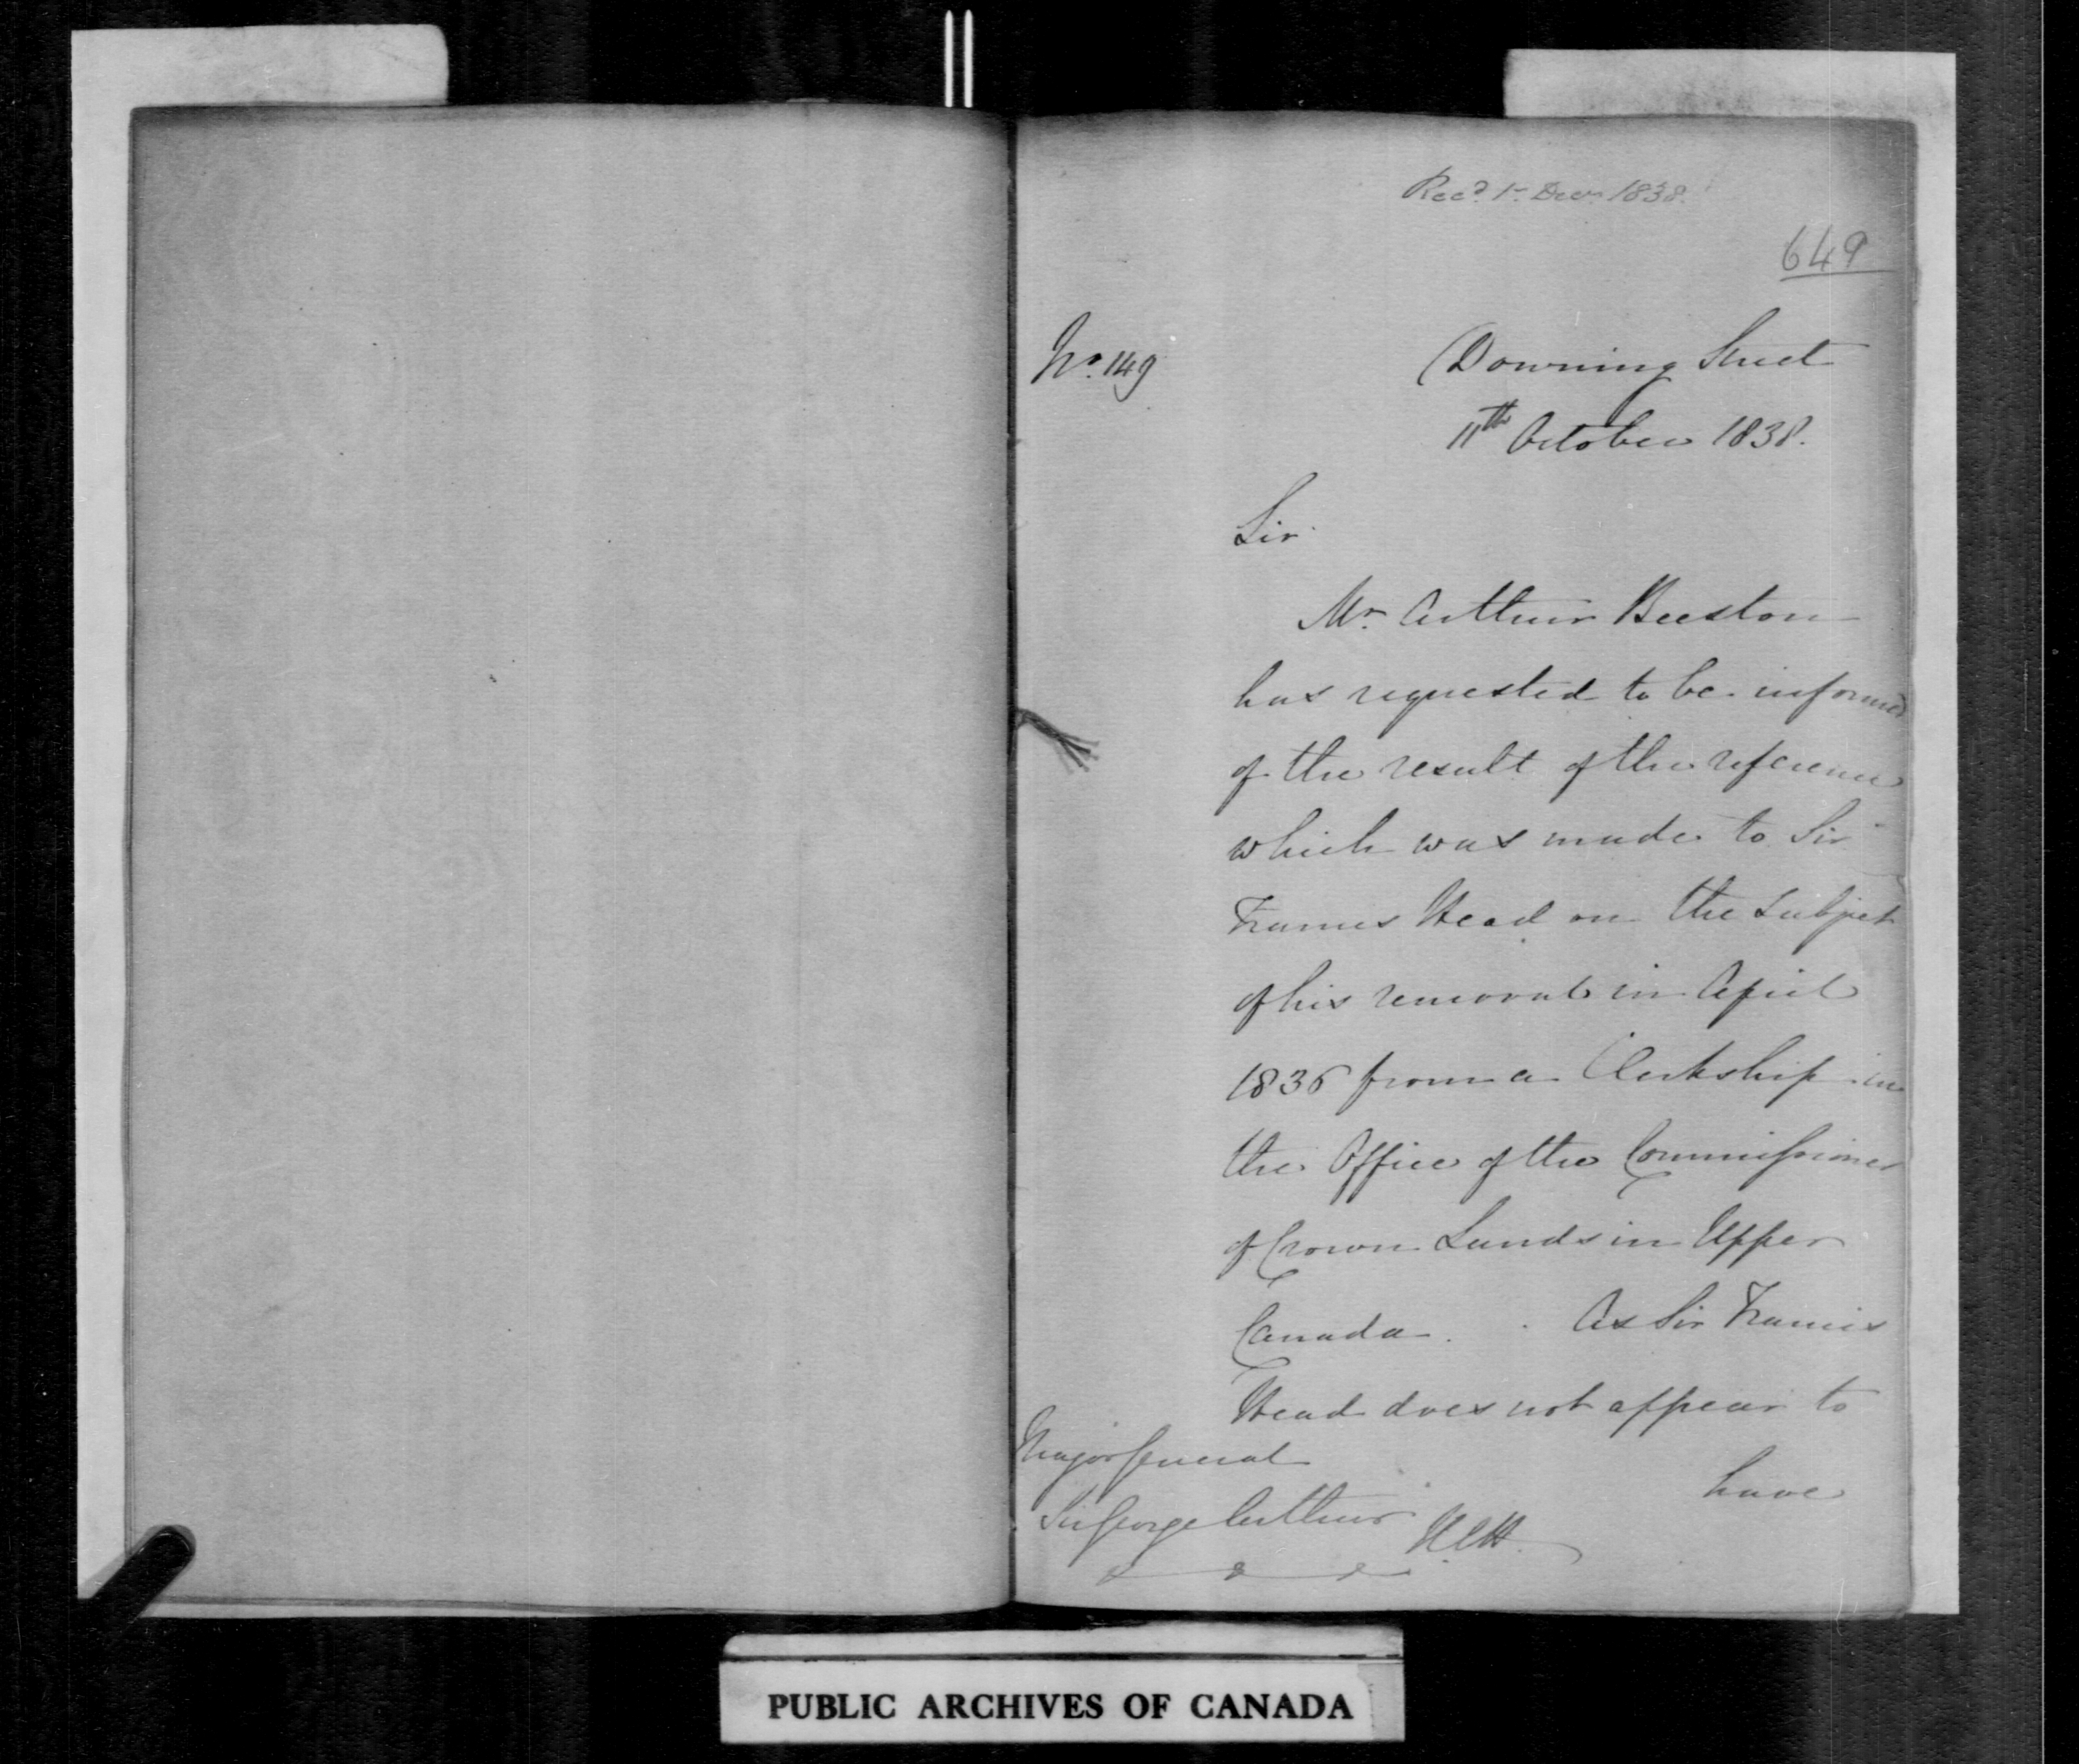 Recd. 1st Decr. 1838.
649
No. 149
Downing Street
11th October 1838.
Sir
Mr. Arthur Beeston
has requested to be informed
of the result of the reference
which was made to Sir
Francis Head on the subject
of his removal in April
1836 from a Clerkship in
the Office of the Commissioner
of Crown Lands in Upper
Canada. As Sir Francis
Head does not appear to
have
Major General
Sir George Arthur K.C.H.
&c &c &c
PUBLIC ARCHIVES OF CANADA